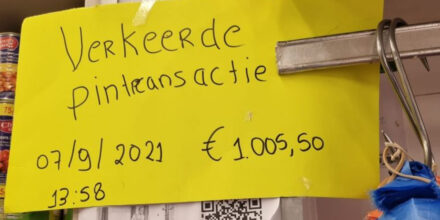 Verkeerde
pintransactie
07/9/2021 € 1.005,50
13:58